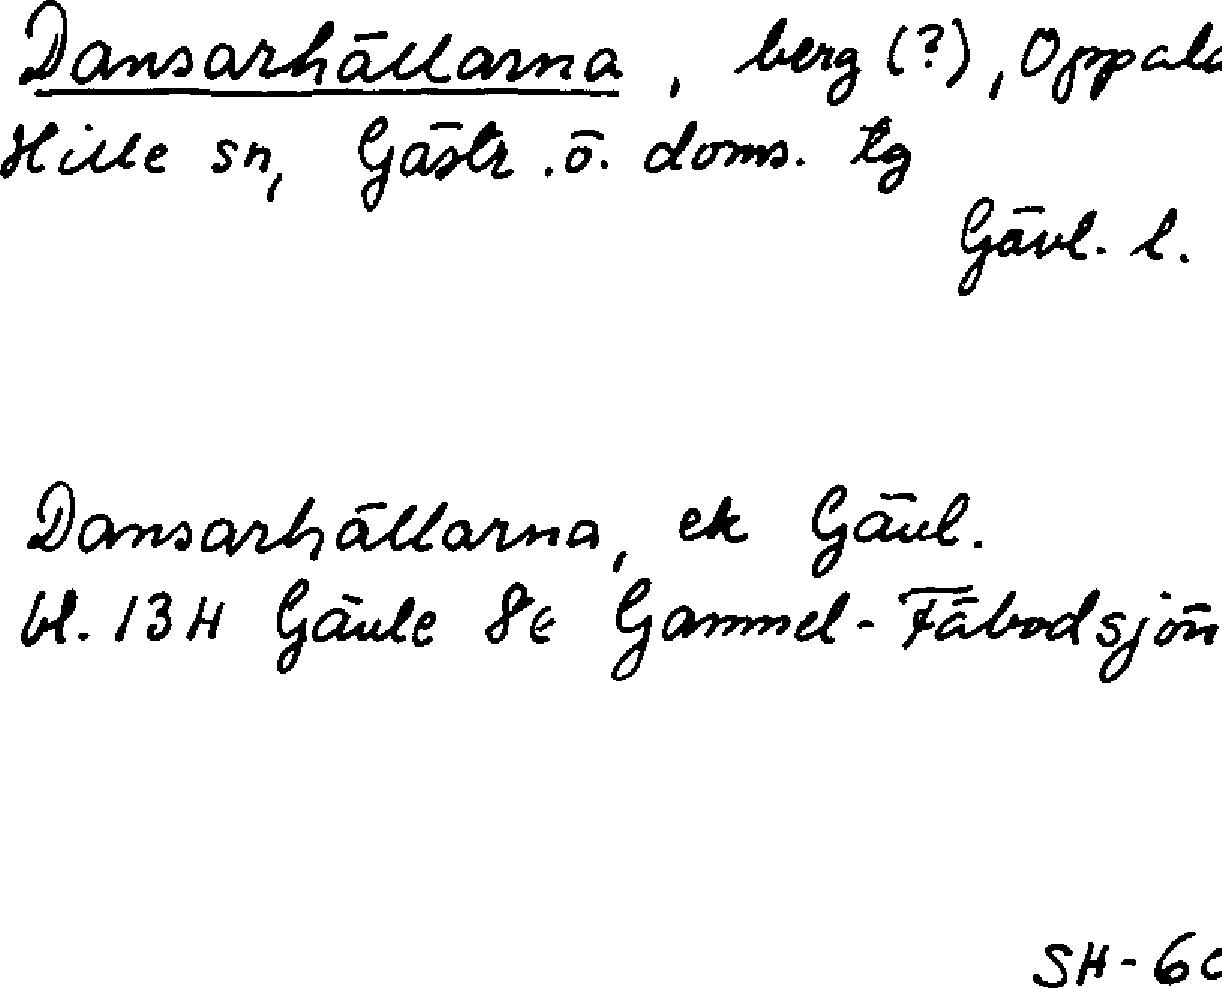 Dansarhällarna, berg (?), Oppala
Hille sn, Gästr. ö. doms. tg
Gävl. l.
Dansarhällarna, ek Gävl.
bl. 13H Gävle 8e Gammel-Fäbodsjön
SH-6